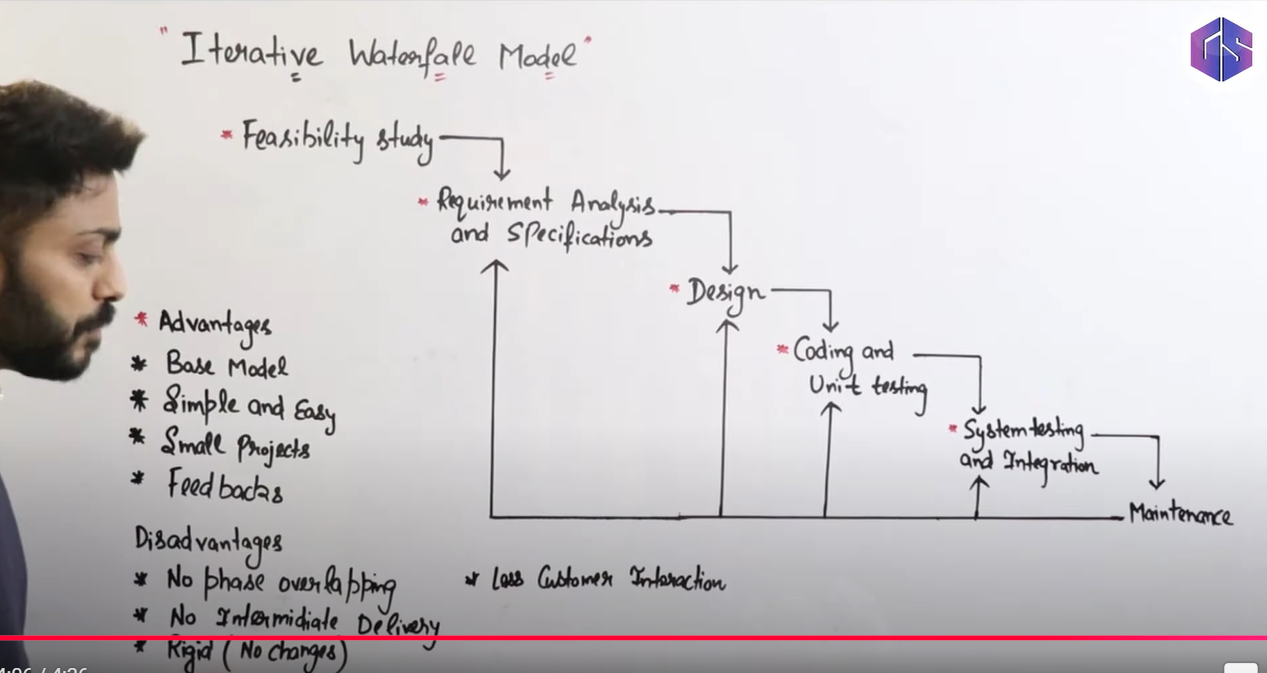 "Iterative Waterfall Model"
* Feasibility study
* Requirement Analysis
and Specifications
* Design
* Coding and
Unit testing
* System testing
and Integration
Maintenance
* Advantages
* Base Model
* Simple and Easy
* Small Projects
* Feedbacks
Disadvantages
* No phase overlapping
* No Intermidiate Delivery
* Rigid (No changes)
* Less Customer Interaction